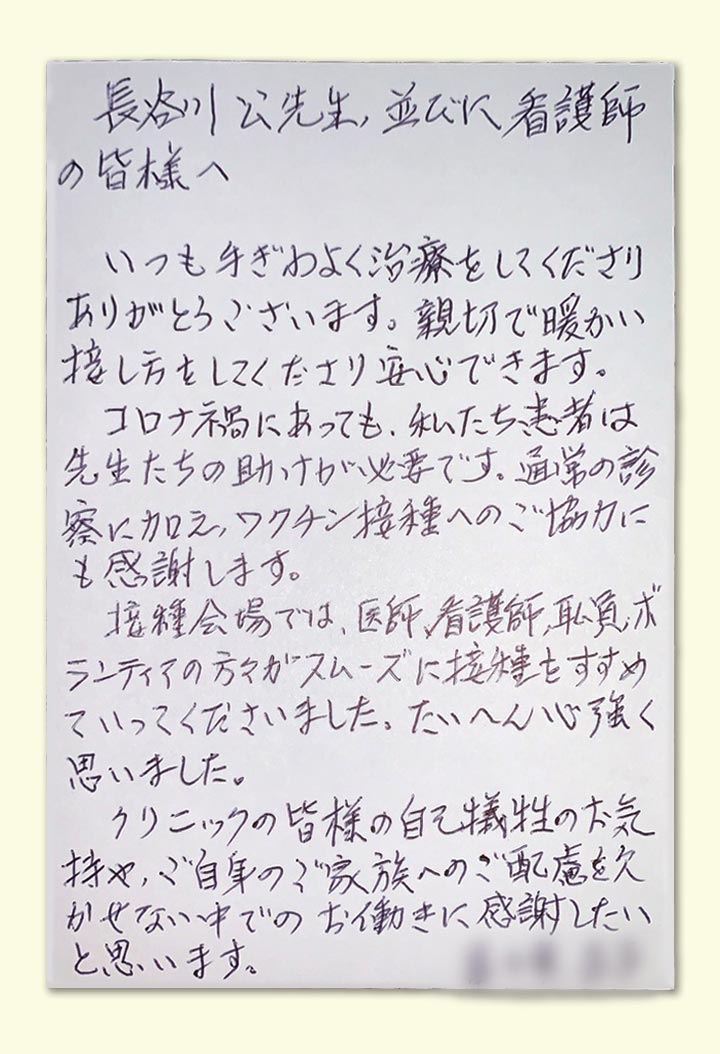 長谷川公先生,並びに看護師
の皆様へ
いつも手ぎわよく治療をしてくださり
ありがとうございます。親切で暖かい
接し方をしてくださり安心できます。
コロナ禍にあっても、私たち患者は
先生たちの助けが必要です。通常の診
察に加え,ワクチン接種へのご協力に
も感謝します。
接種会場では、医師,看護師,耺員,ボ
ランティアの方々がスムーズに接種をすすめ
ていってくださいました。たいへん心強く
思いました。
クリニックの皆様の自己犠牲のお気
持や,ご自身のご家族へのご配慮を欠
かせない中でのお働きに感謝したい
と思います。